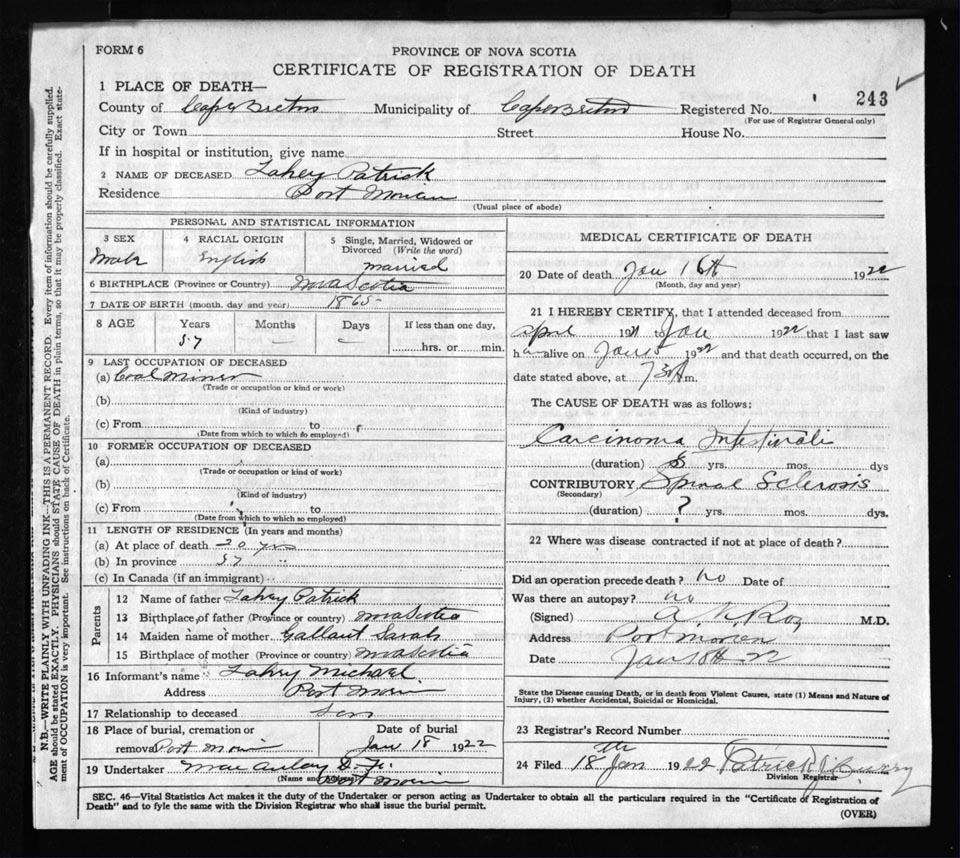 FORM 6
PROVINCE OF NOVA SCOTIA
CERTIFICATE OF REGISTRATION OF DEATH
1 PLACE OF DEATH—
County of Cape Breton Municipality of Cape Breton Registered No. 243
(For use of Registrar General only)
City or Town Street House No.
If in hospital or institution, give name
2 NAME OF DECEASED Lahey Patrick
Residence Port Morien
(Usual place of abode)
PERSONAL AND STATISTICAL INFORMATION
3 SEX
Male
4 RACIAL ORIGIN
English
5 Single, Married, Widowed or Divorced (Write the word)
married
6 BIRTHPLACE (Province or Country) Nova Scotia
7 DATE OF BIRTH (month, day and year) 1865
8 AGE Years Months Days If less than one day,
57 — — hrs. or min.
9 LAST OCCUPATION OF DECEASED
(a) Coal Miner
(Trade or occupation or kind or work)
(b)
(Kind of industry)
(c) From to
(Date from which to which so employed)
10 FORMER OCCUPATION OF DECEASED
(a)
(Trade or occupation or kind of work)
(b)
(Kind of industry)
(c) From to
(Date from which to which so employed)
11 LENGTH OF RESIDENCE (In years and months)
(a) At place of death 20 yrs
(b) In province 57 "
(c) In Canada (if an immigrant)
Parents
12 Name of father Lahey Patrick
13 Birthplace of father (Province or country) Nova Scotia
14 Maiden name of mother Gallant Sarah
15 Birthplace of mother (Province or country) Nova Scotia
16 Informant's name Lahey Michael
Address Port Morien
17 Relationship to deceased Son
18 Place of burial, cremation or
removal Port Morien
Date of burial
Jan 18 1922
19 Undertaker MacAuley
(Name and Address) Port Morien
MEDICAL CERTIFICATE OF DEATH
20 Date of death Jan 16th 1922
(Month, day and year)
21 I HEREBY CERTIFY, that I attended deceased from
April 1921 to Jan 1922 that I last saw
h alive on Jan 1922 and that death occurred, on the
date stated above, at m.
The CAUSE OF DEATH was as follows:
Carcinoma Intestinali
(duration) yrs. mos. dys
CONTRIBUTORY Spinal Sclerosis
(Secondary)
(duration) ? yrs. mos. dys.
22 Where was disease contracted if not at place of death?
Did an operation precede death? no Date of
Was there an autopsy? no
(Signed) A. Roy M.D.
Address Port Morien
Date Jan 18th 22
State the Disease causing Death, or in death from Violent Causes, state (1) Means and Nature of
Injury, (2) whether Accidental, Suicidal or Homicidal.
23 Registrar's Record Number
24 Filed 18th Jan 1922 Patrick
Division Registrar
SEC. 46—Vital Statistics Act makes it the duty of the Undertaker or person acting as Undertaker to obtain all the particulars required in the "Certificate of Registration of
Death" and to fyle the same with the Division Registrar who shall issue the burial permit.
(OVER)
N.B.—WRITE PLAINLY WITH UNFADING INK—THIS IS A PERMANENT RECORD. Every item of information should be carefully supplied.
AGE should be stated EXACTLY. PHYSICIANS should STATE CAUSE OF DEATH in plain terms, so that it may be properly classified. Exact state-
ment of OCCUPATION is very important. See instructions on back of Certificate.